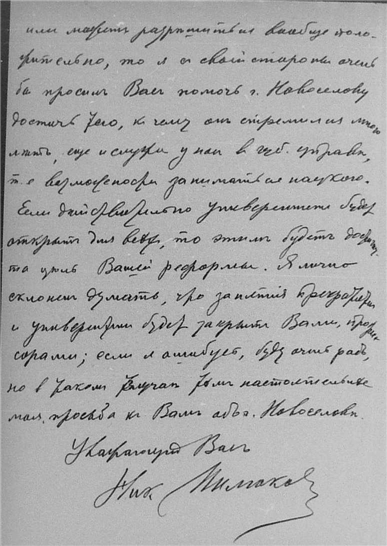 или можетъ разрѣшиться вообще поло-
жительно, то я съ своей стороны очень
бы просилъ Васъ помочь г. Новоселову
достичь того, къ чему онъ стремился много
лѣтъ, еще и служа у насъ в губ. управѣ,
т. е возможности заниматься наукою.
Если дѣйствительно университетъ будетъ
открытъ для всѣхъ, то этимъ будетъ достигну-
та цѣль Вашей реформы. Я лично
склоненъ думать, что занятія прекратятся
и университетъ будетъ закрытъ Вами, профес-
сорами; если я ошибусь, буду очень радъ,
но в такомъ случаѣ тѣмъ настоятельнѣе
моя просьба къ Вамъ объ г. Новоселовѣ.
Уважающій Васъ
Ник